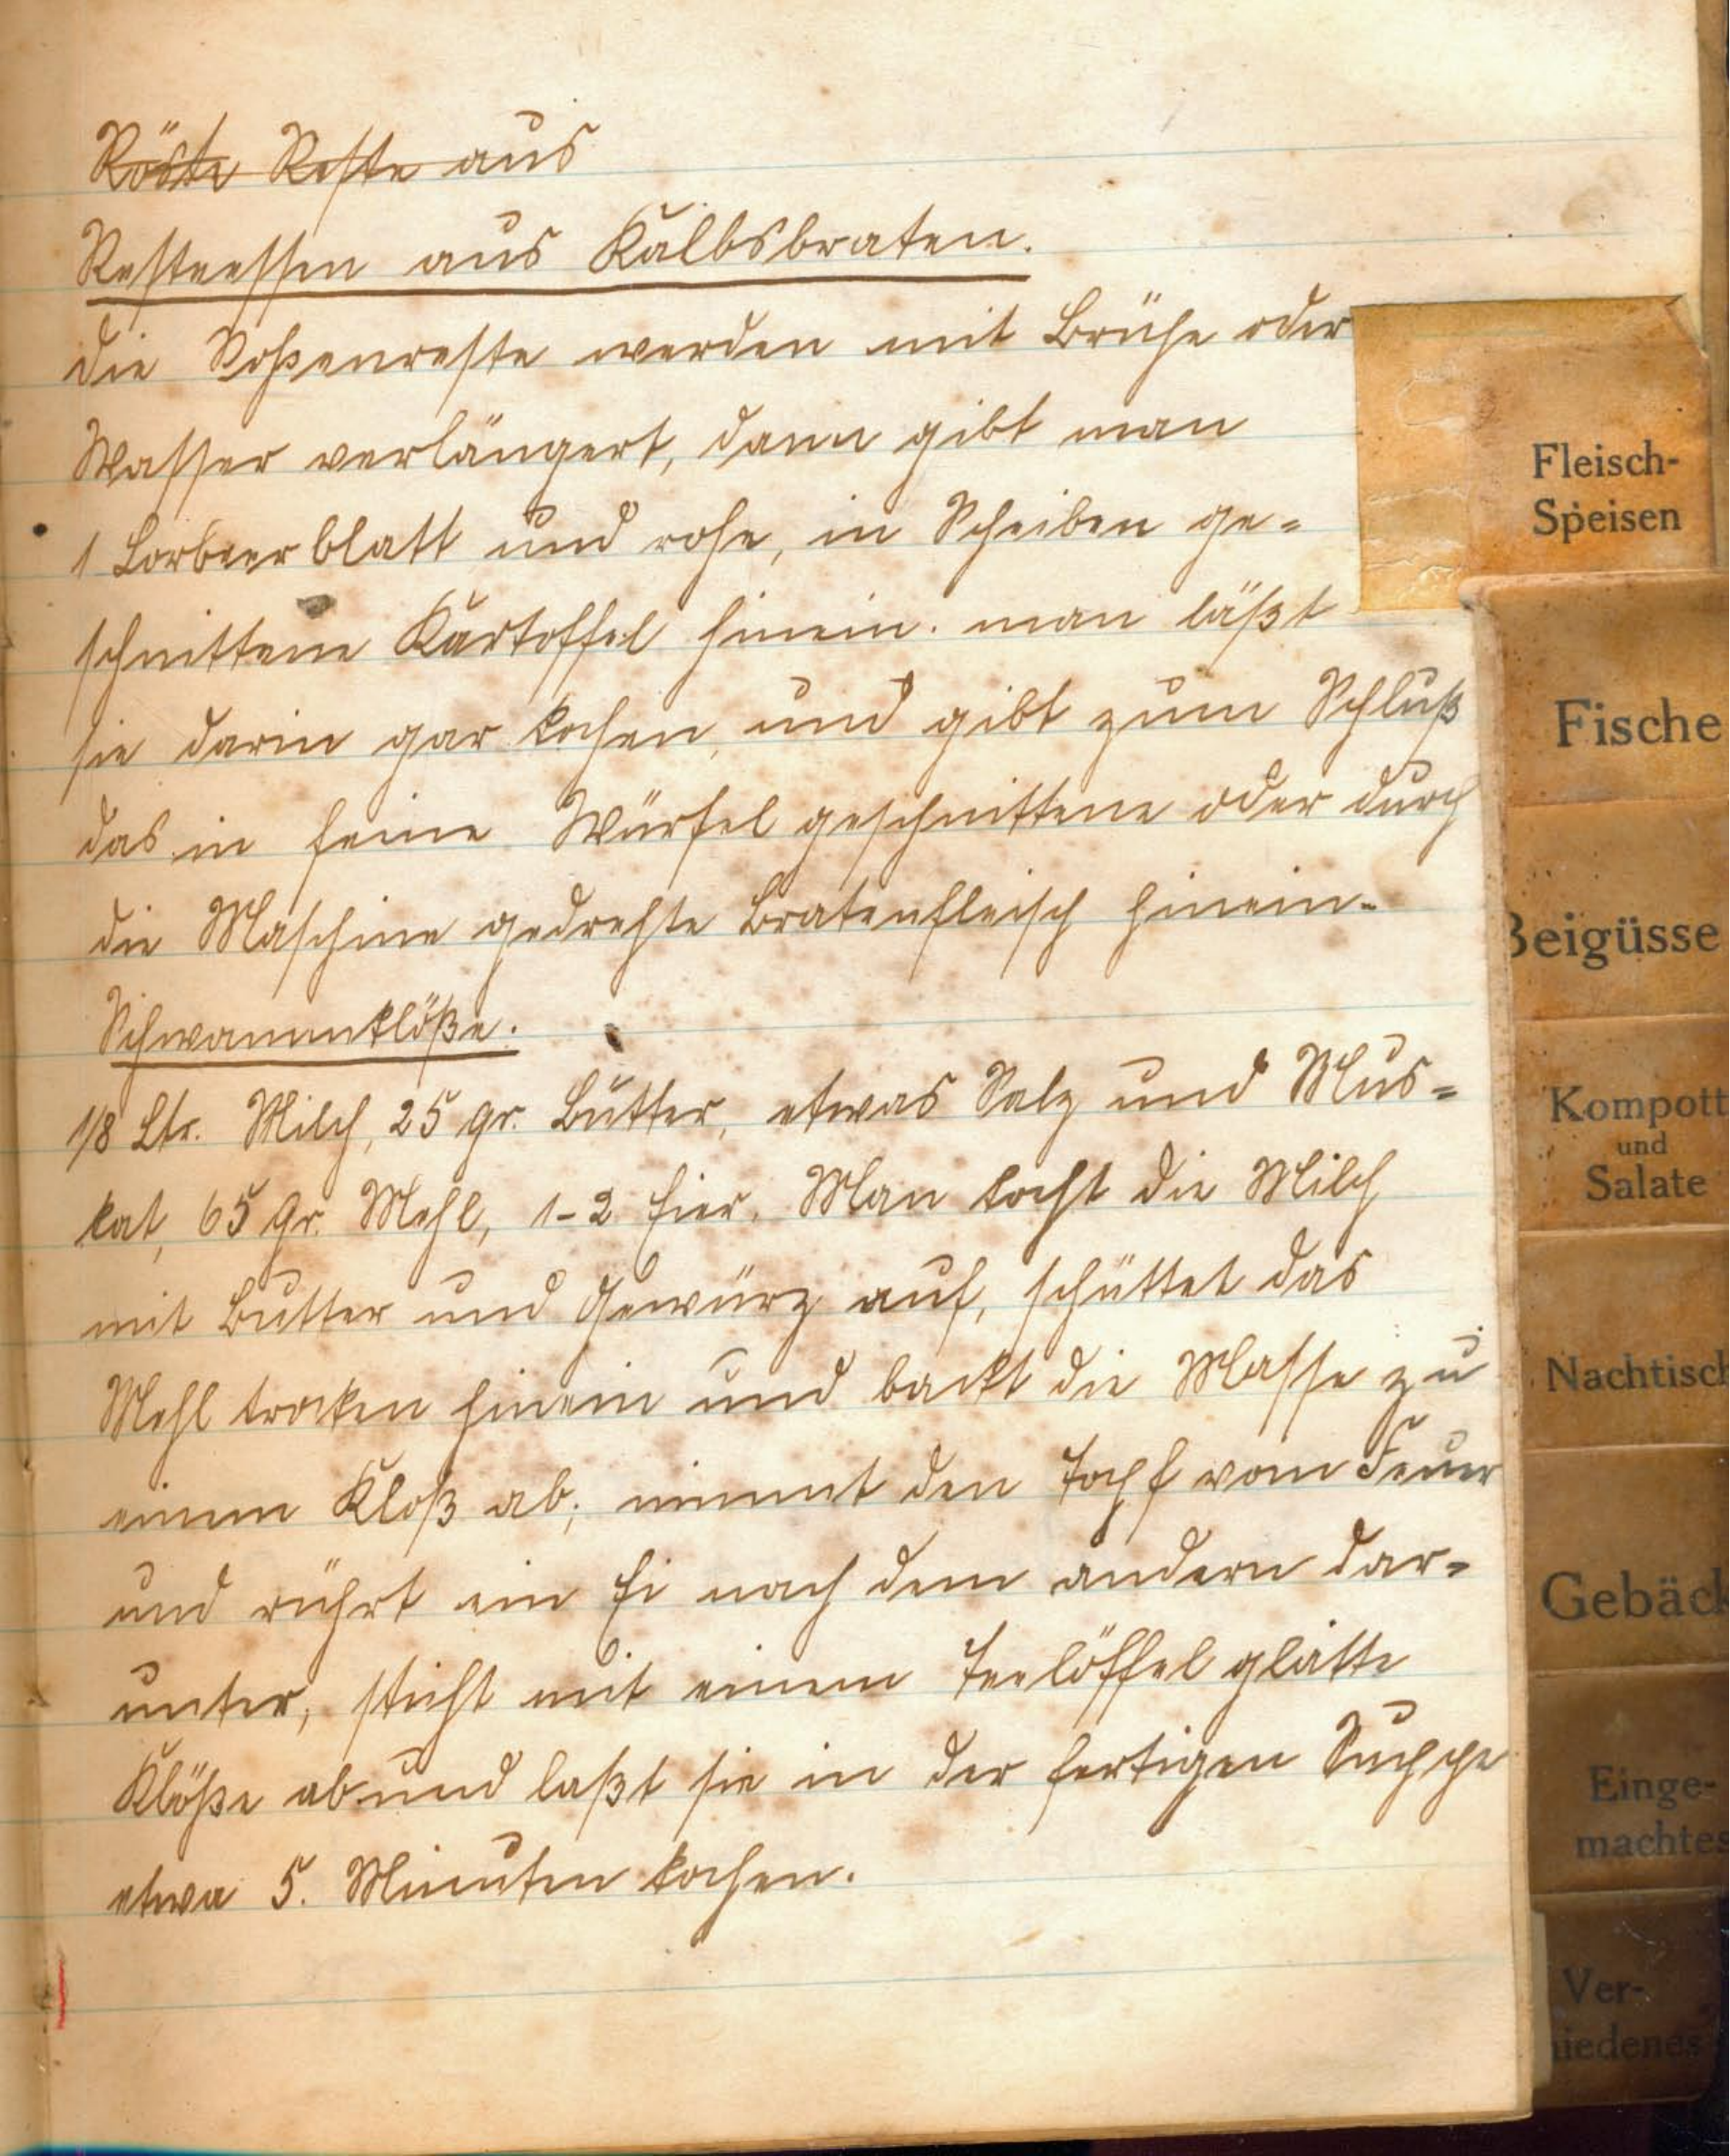 Röste Reste aus
Resteessen aus Kalbsbraten.
die Soßenreste werden mit Brühe oder
Wasser verlängert, dann gibt man
1 Lorbeerblatt und rohe, in Scheiben ge=
schnittene Kartoffel hinein. man läßt
sie darin gar kochen, und gibt zum Schluß
das in feine Würfel geschnittene oder durch
die Maschine gedrehte Bratenfleisch hinein.
Schwammklöße.
1/8 Ltr. Milch, 25 gr. Butter, etwas Salz und Mus=
kat, 65 gr. Mehl, 1-2 Eier. Man kocht die Milch
mit Butter und Gewürz auf, schüttet das
Mehl trocken hinein und backt die Masse zu
einem Kloß ab; nimmt den Topf vom Feuer
und rührt ein Ei nach dem andern dar=
unter, sticht mit einem Teelöffel glatte
Klöße ab und laßt sie in der fertigen Suppe
etwa 5. Minuten kochen.
Fleisch-
Speisen
Fische
Beigüsse
Kompott
und
Salate
Nachtisch
Gebäck
Einge-
machtes
Ver-
hiedenes